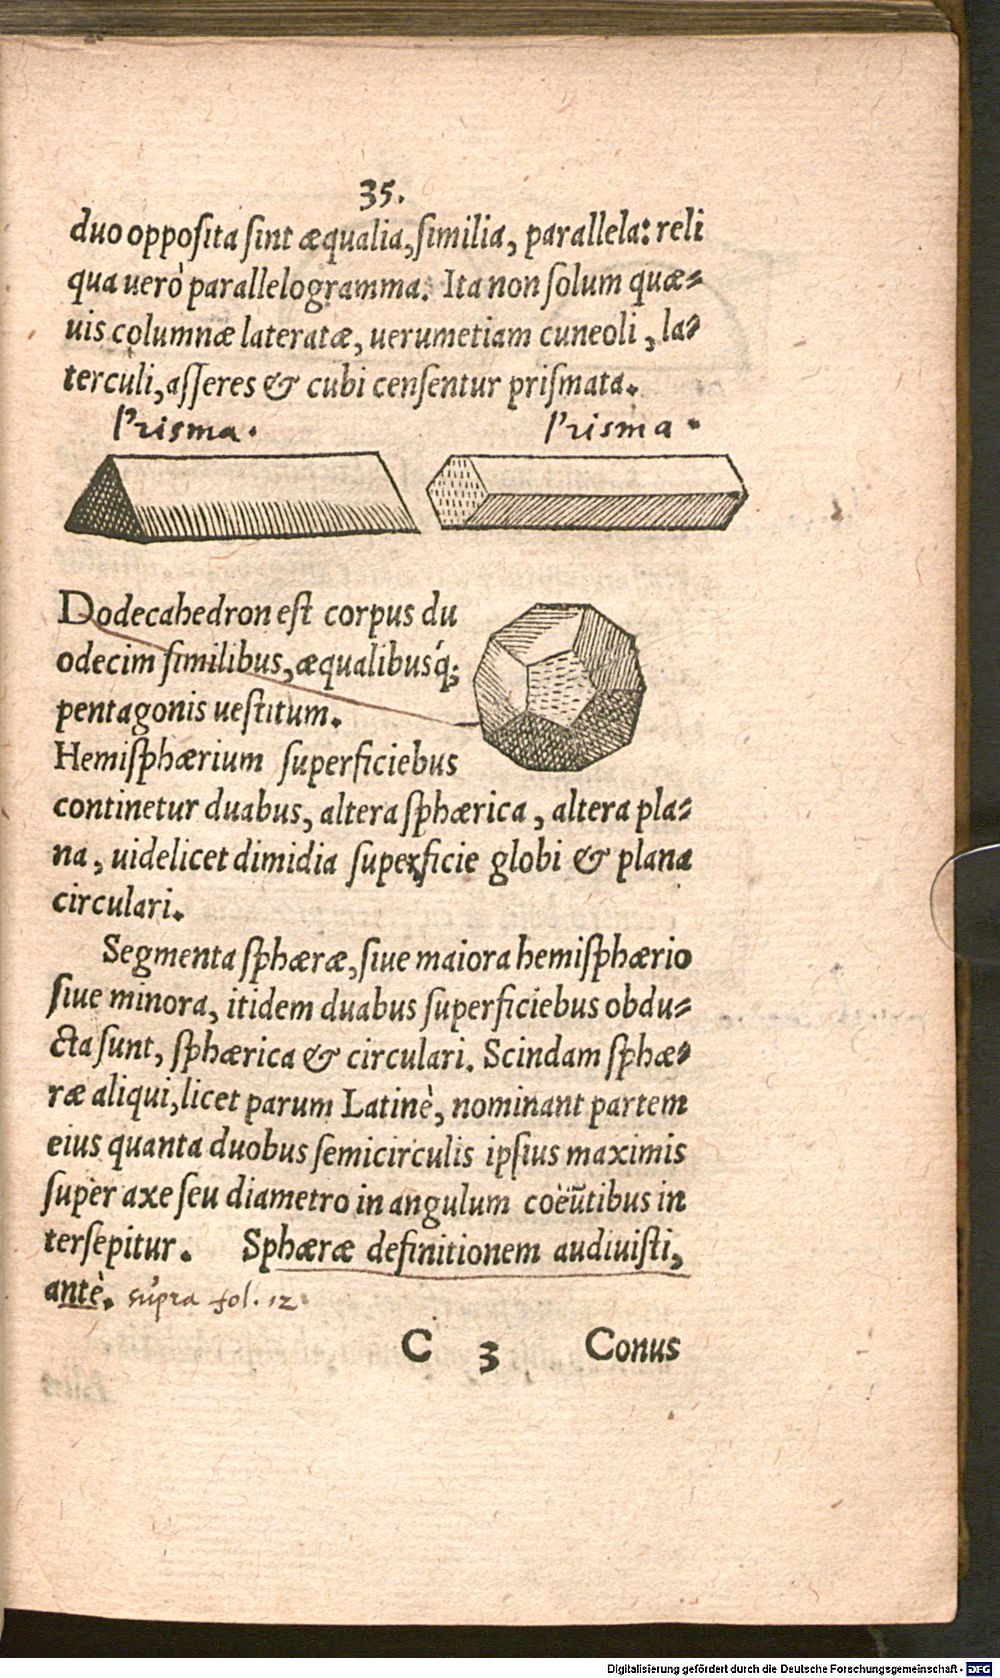 35.
duo opposita sint æqualia, similia, parallela: reli
qua uerò parallelogramma. Ita non solum quæ-
uis columnæ lateratæ, uerumetiam cuneoli, la-
terculi, asseres & cubi censentur prismata.
Prisma. Prisma.
Dodecahedron est corpus du
odecim similibus, æqualibusq́;
pentagonis uestitum.
Hemisphærium superficiebus
continetur duabus, altera sphærica, altera pla-
na, uidelicet dimidia superficie globi & plana
circulari.
Segmenta sphæræ, siue maiora hemisphærio
siue minora, itidem duabus superficiebus obdu-
cta sunt, sphærica & circulari. Scindam sphæ-
ræ aliqui, licet parum Latinè, nominant partem
eius quanta duobus semicirculis ipsius maximis
super axe seu diametro in angulum coëũtibus in
tersepitur. Sphæræ definitionem audiuisti,
antè. supra fol. 12
C 3 Conus
Digitalisierung gefördert durch die Deutsche Forschungsgemeinschaft - DFG